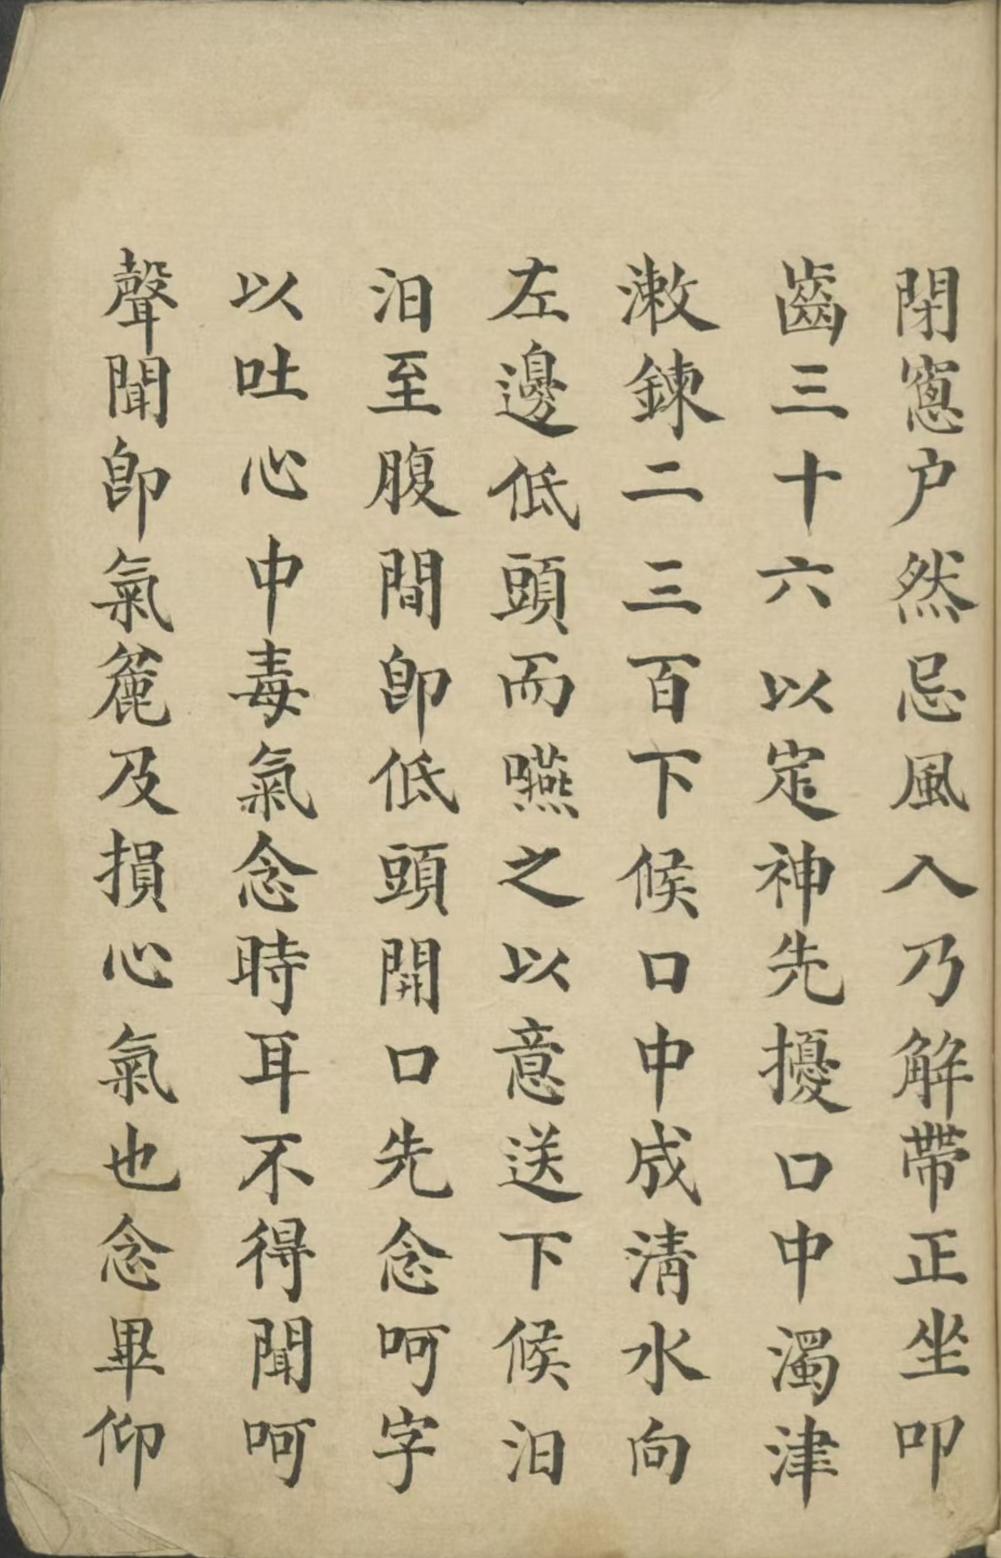 閉窻户然忌風入乃解帶正坐叩
齒三十六以定神先擾口中濁津
漱鍊二三百下候口中成清水向
左邊低頭而嚥之以意送下候汩
汩至腹間卽低頭開口先念呵字
以吐心中毒氣念時耳不得聞呵
聲聞卽氣麄及損心氣也念畢仰